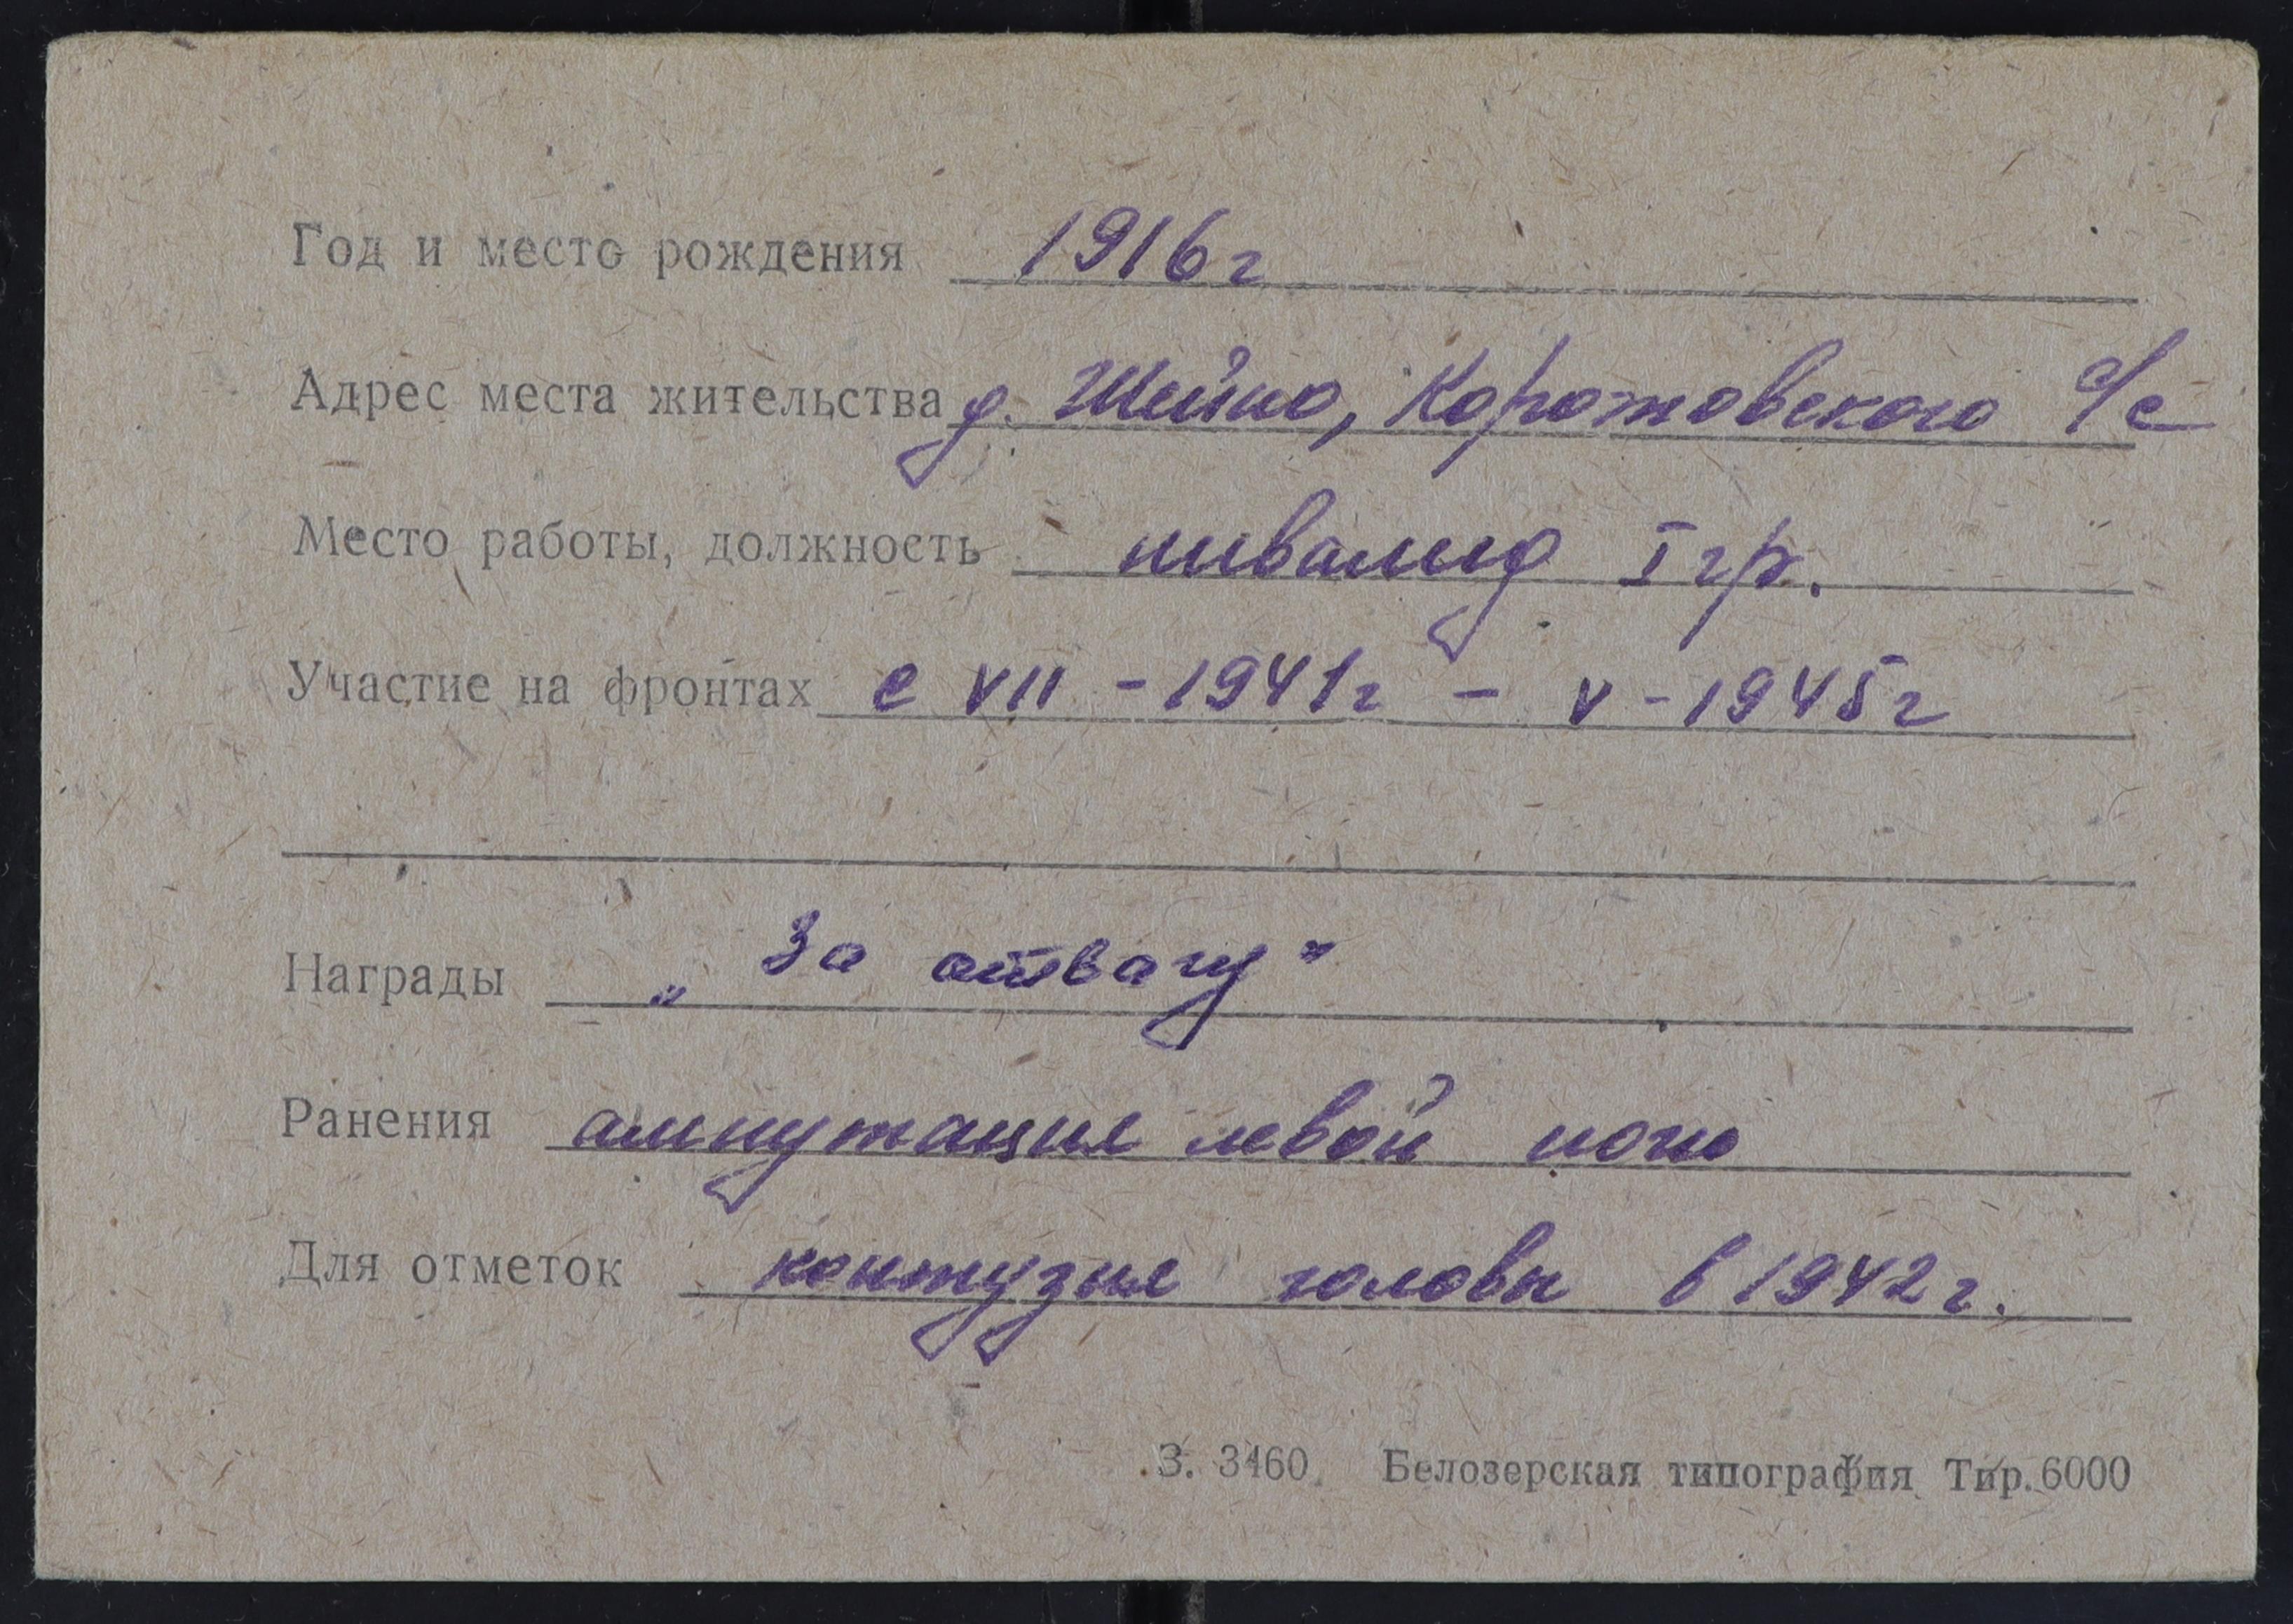 Год и место рождения 1916 г
Адрес места жительства д. Шейно, Коротовского с/с
Место работы, должность инвалид I гр.
Участие на фронтах с VII - 1941 г - V - 1945 г
Награды „За отвагу"
Ранения ампутация левой ноги
Для отметок контузия головы в 1942 г.
З. 3460 Белозерская типография Тир. 6000